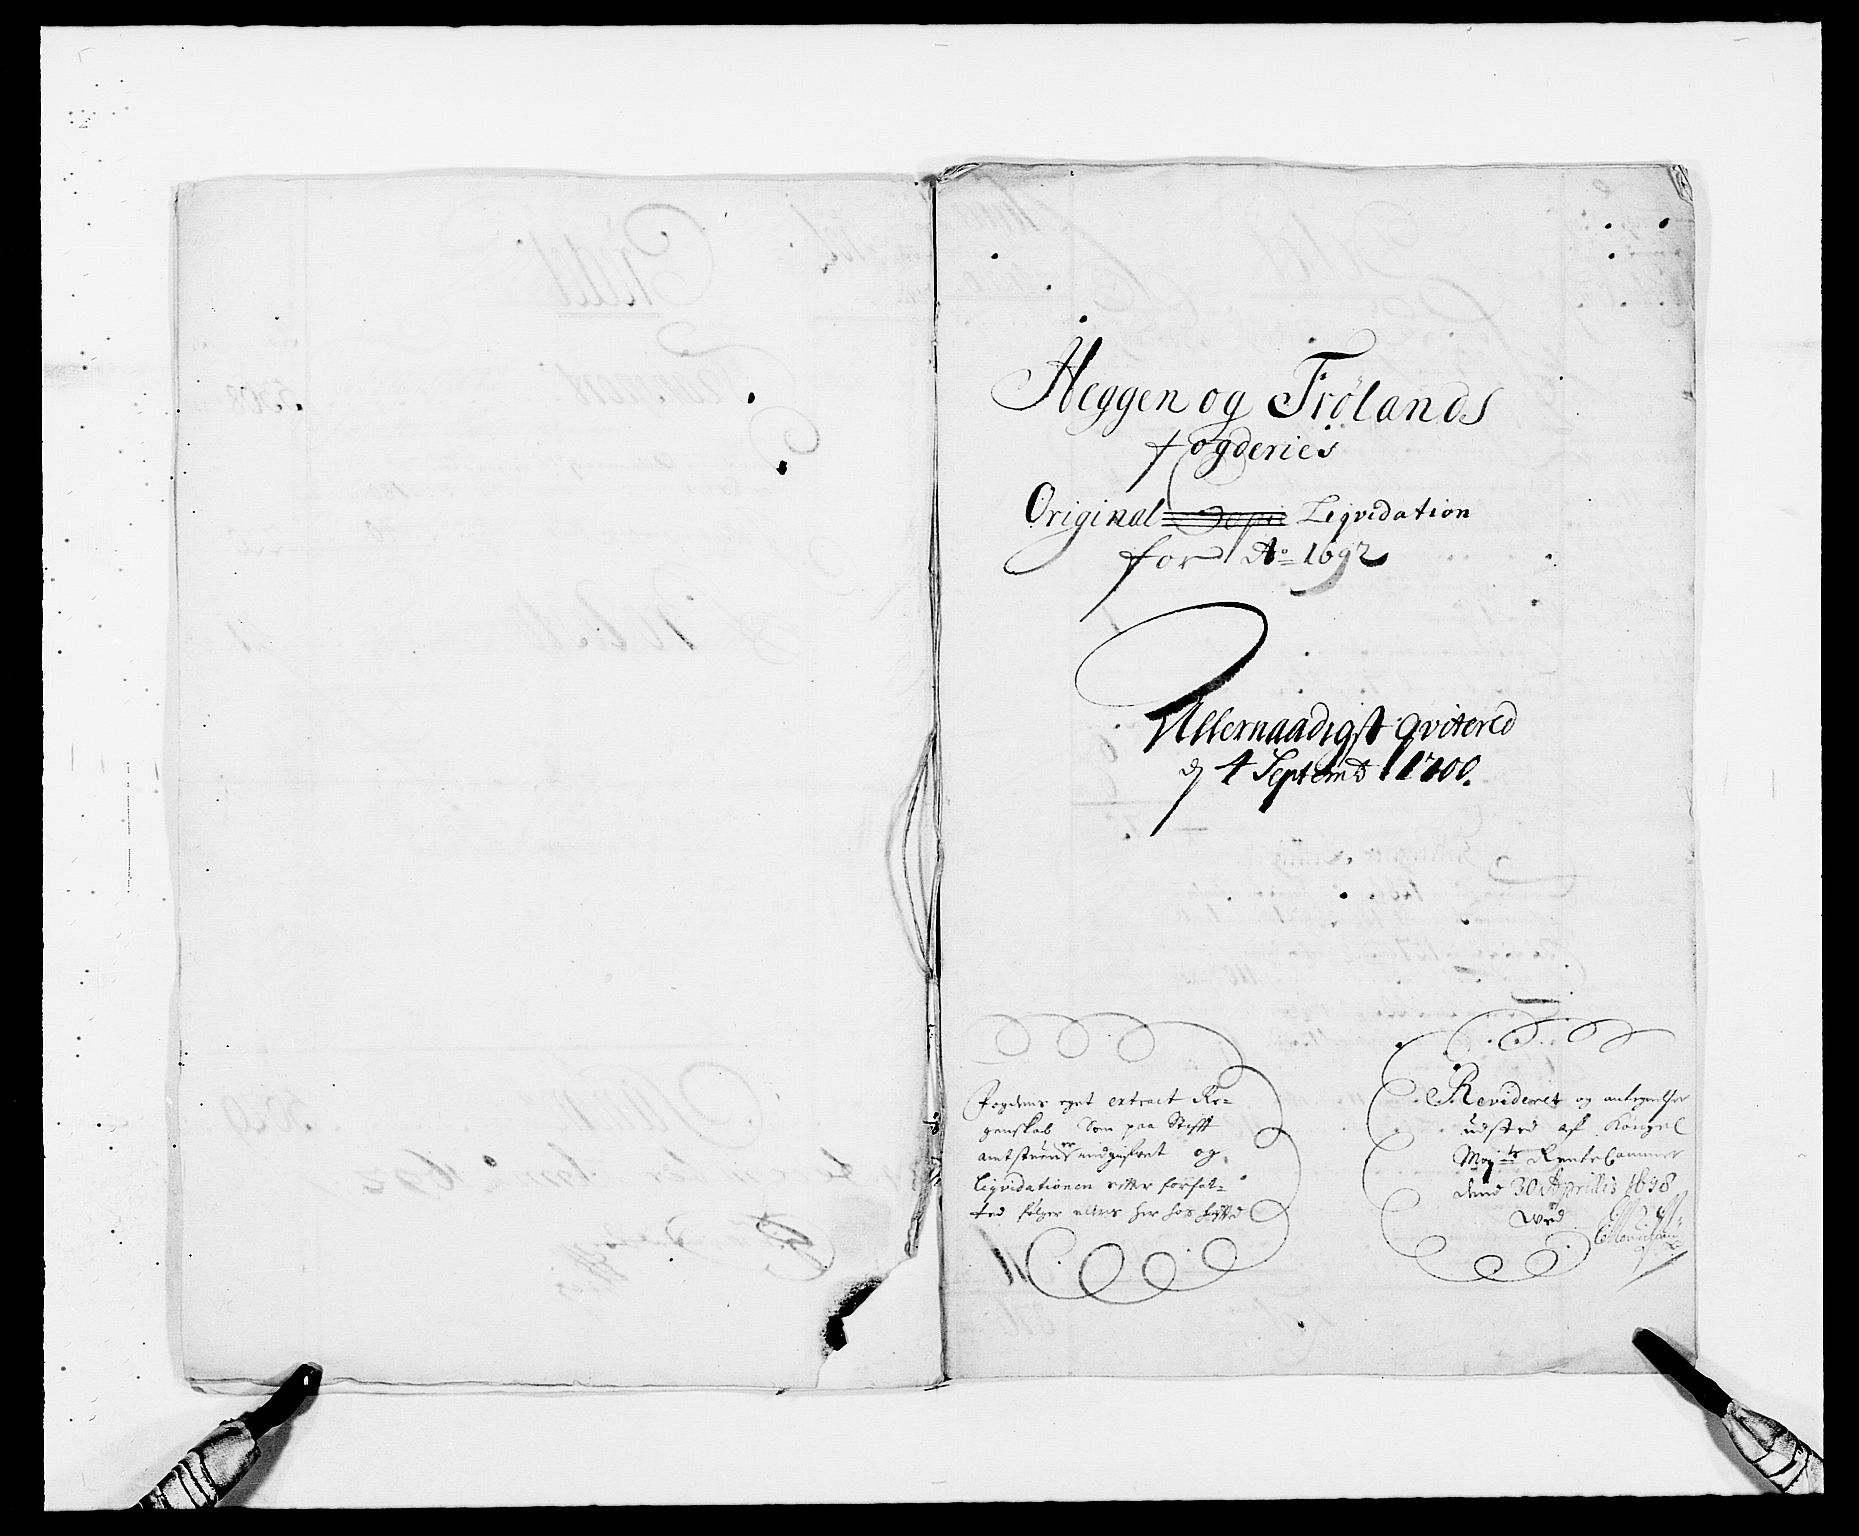 Heggen og Frølands
fogderies
Original Copie Liqvidation
for Ao 1692
Allernaadigst qvitered
d 4 Septemb 1700.
Fogdens eget extract Re-
genskab Som paa Stifft
amtstuens er indgifvet og
Liqvidationen efter forfat-
ted følger ellers her hos hæfted
Revideret og antegnelser
udsted af Kongel
Mayts Rente Cammer
dend 30 Aprilis 1698
Ved